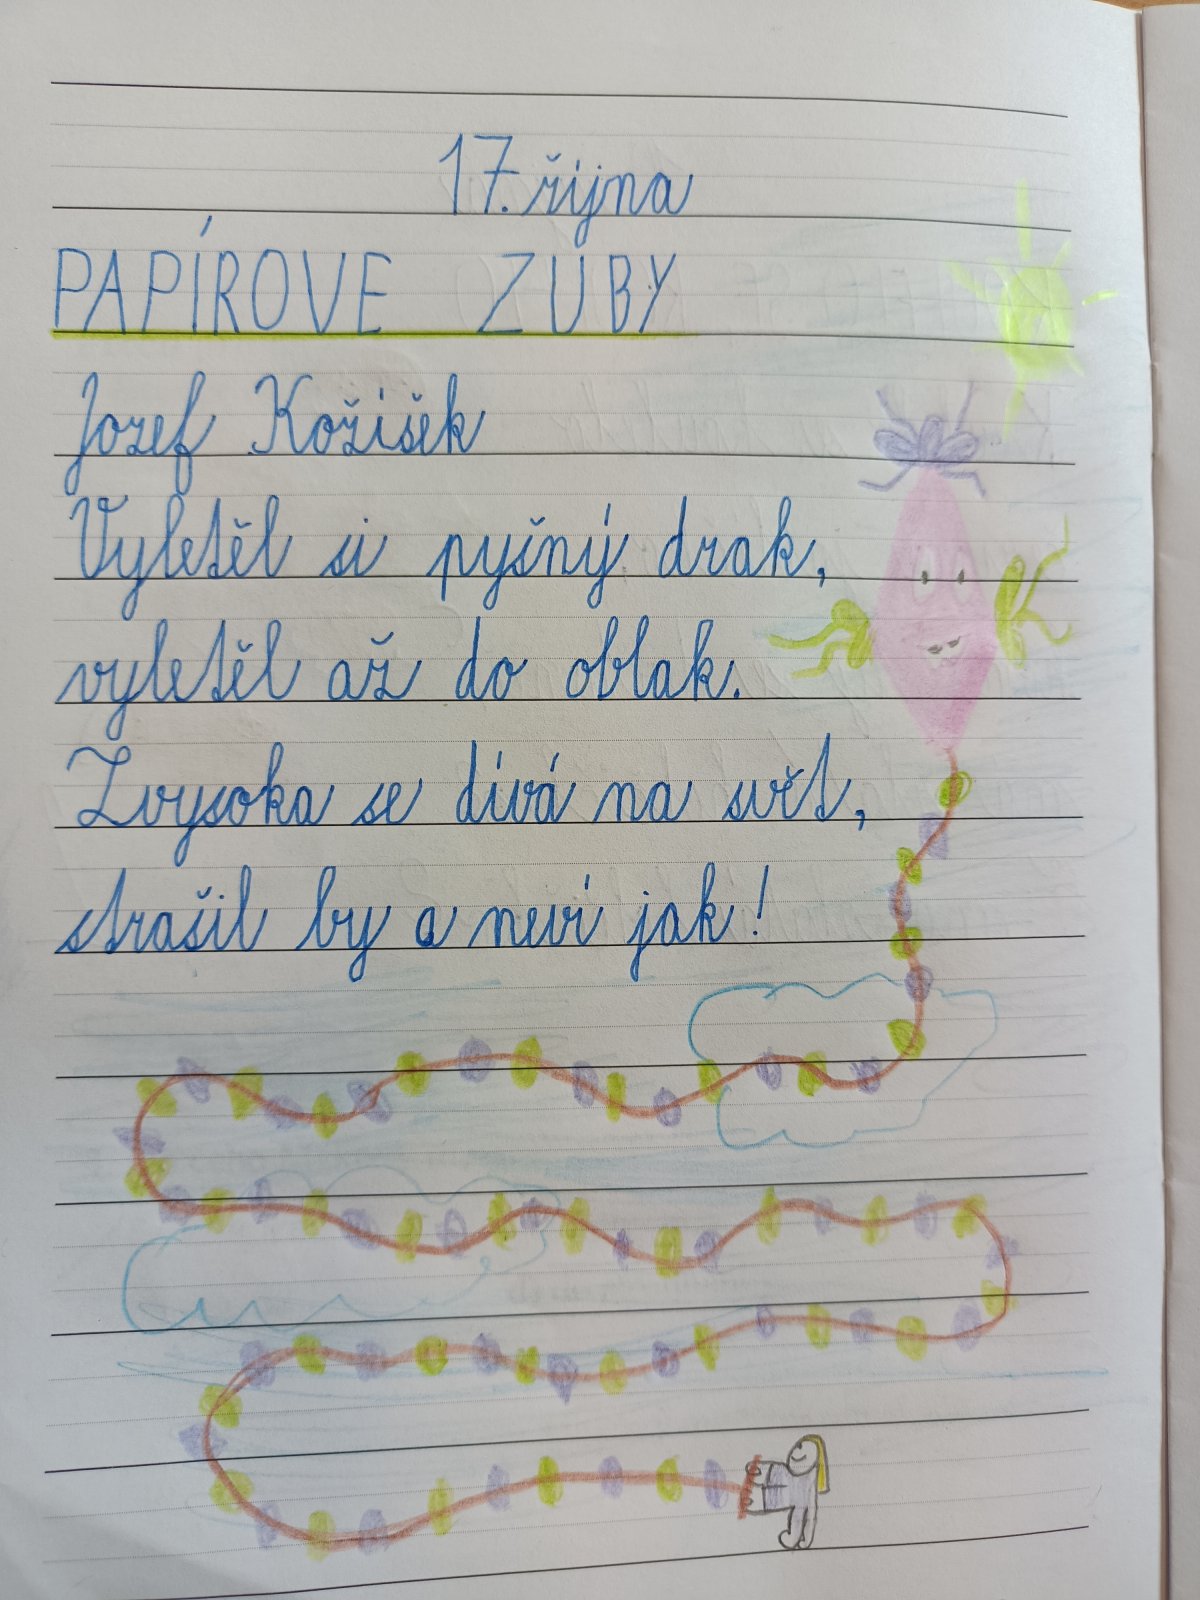 17. října
PAPÍROVE ZUBY
Jozef Kožišek
Vyletěl si pyšný drak,
vyletěl až do oblak.
Zvysoka se divá na svět,
strašil by a neví jak!